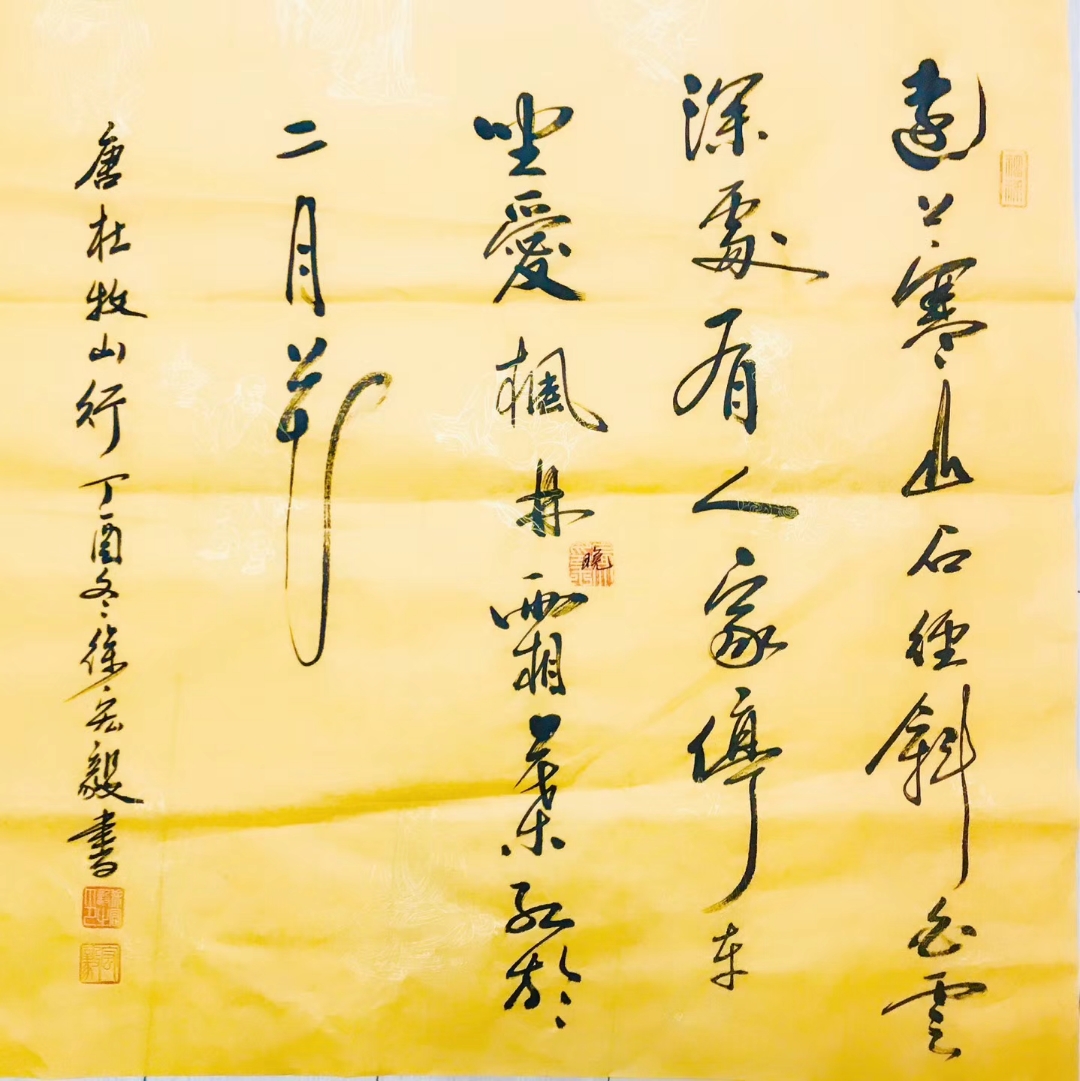 遠上寒山石徑斜白雲
深處有人家停車
坐愛楓林晚霜葉紅於
二月花
唐杜牧山行丁酉冬徐宏毅書